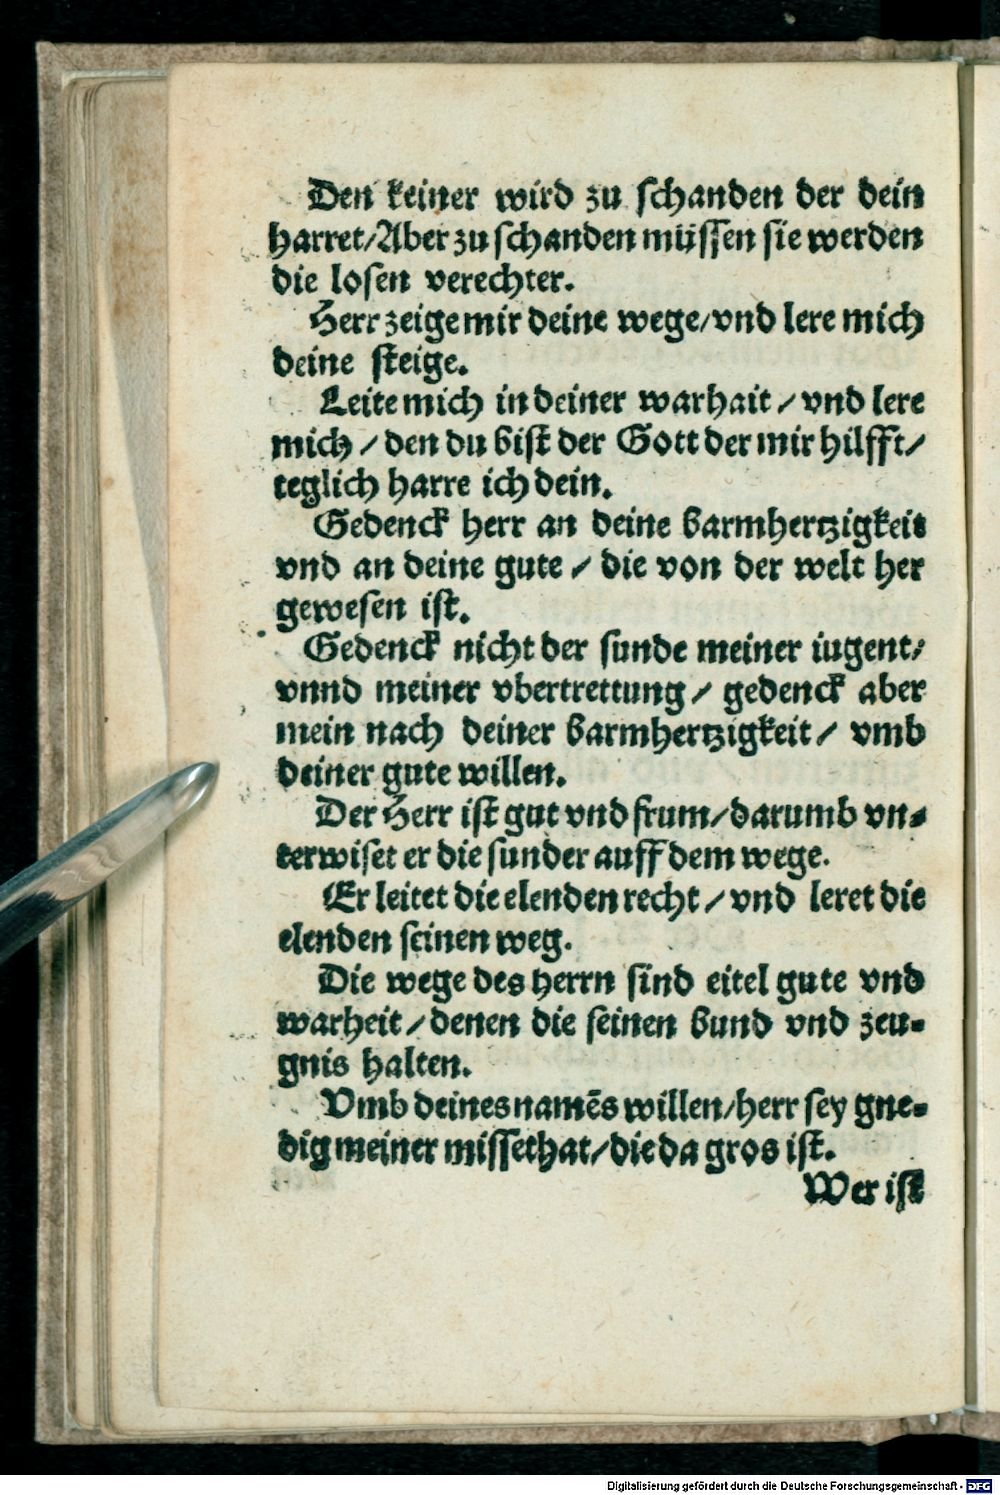 Den keiner wird zu schanden der dein
harret/Aber zu schanden müssen sie werden
die losen verechter.
Herr zeige mir deine wege/vnd lere mich
deine steige.
Leite mich in deiner warhait/vnd lere
mich/den du bist der Gott der mir hilfft/
teglich harre ich dein.
Gedenck herr an deine barmhertzigkeit
vnd an deine gute/die von der welt her
gewesen ist.
Gedenck nicht der sunde meiner iugent/
vnnd meiner vbertrettung/gedenck aber
mein nach deiner barmhertzigkeit/vmb
deiner gute willen.
Der Herr ist gut vnd frum/darumb vn=
terwiset er die sunder auff dem wege.
Er leitet die elenden recht/vnd leret die
elenden seinen weg.
Die wege des herrn sind eitel gute vnd
warheit/denen die seinen bund vnd zeu=
gnis halten.
Vmb deines namēs willen/herr sey gne=
dig meiner missethat/die da gros ist.
Wer ist
Digitalisierung gefördert durch die Deutsche Forschungsgemeinschaft - DFG